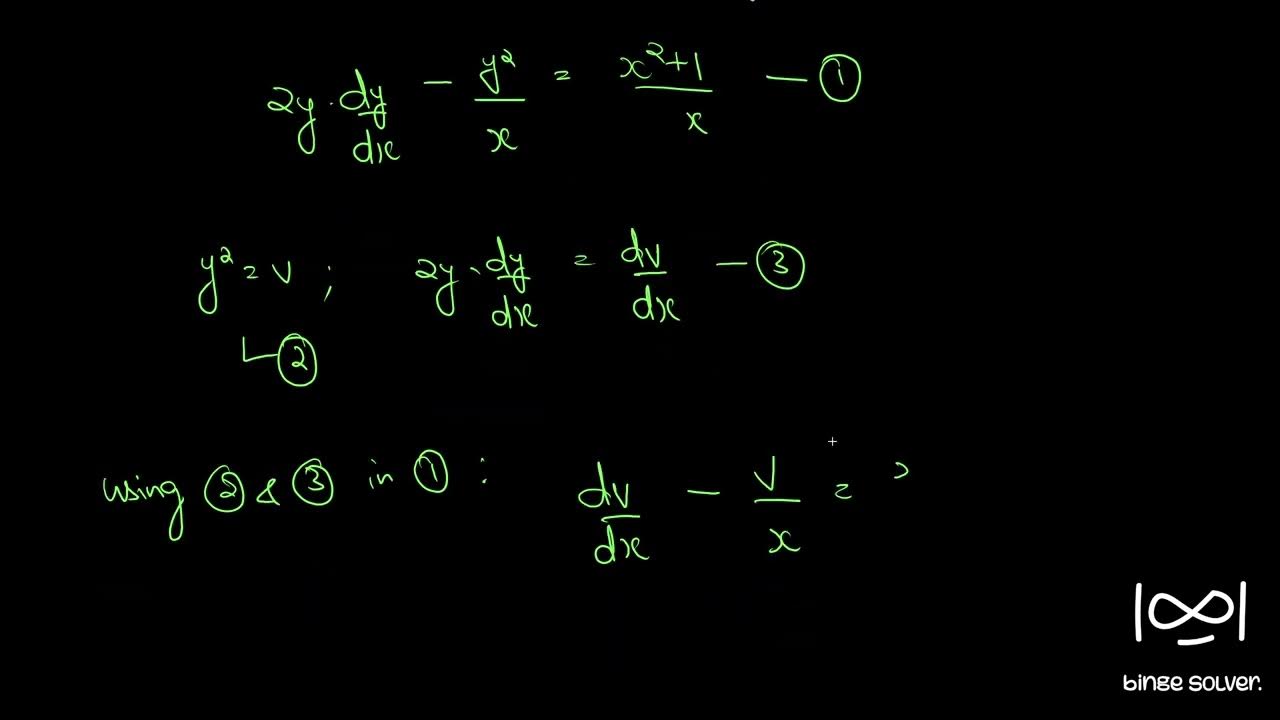 2y · dy/dx − y²/x = (x²+1)/x — ①
y² = v ; 2y · dy/dx = dv/dx — ③
②
using ② & ③ in ① : dv/dx − v/x =
binge solver.